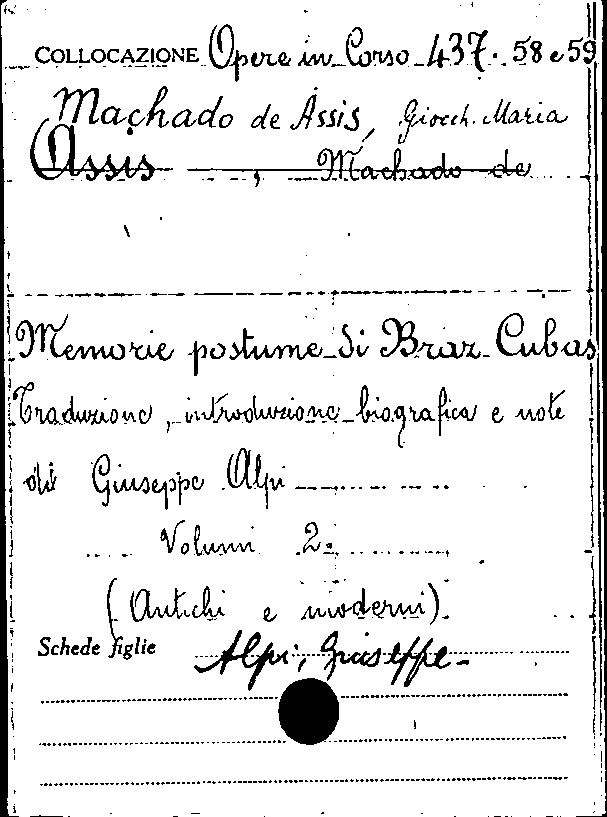 COLLOCAZIONE Opere in Corso 437. 58 e 59
Machado de Assis, Giocch. Maria
Assis , Machado de
Memorie postume di Braz Cubas
Traduzione, introduzione biografica e note
di Giuseppe Alpi
Volumi 2.
(Antichi e moderni).
Schede figlie Alpi, Giuseppe